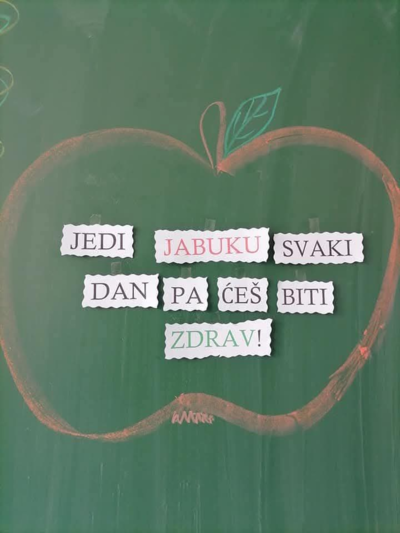 JEDI JABUKU SVAKI
DAN PA ĆEŠ BITI
ZDRAV!